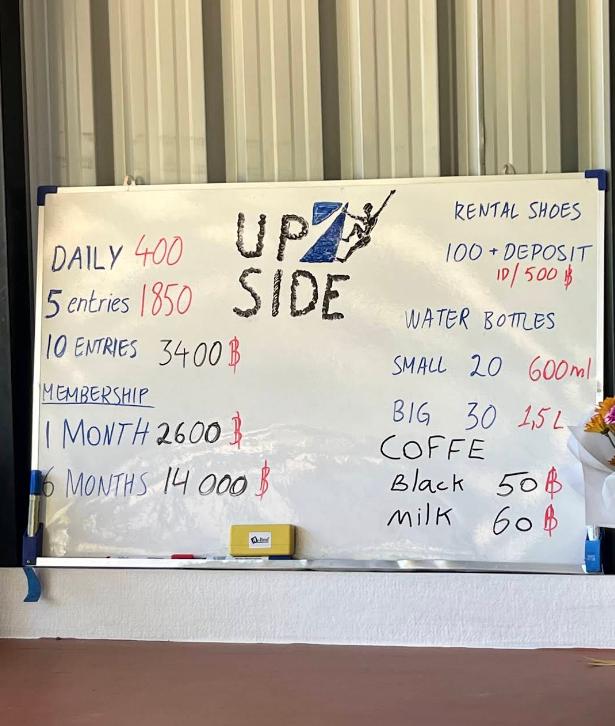 UP
SIDE
DAILY 400
5 entries 1850
10 ENTRIES 3400 ฿
MEMBERSHIP
1 MONTH 2600 ฿
6 MONTHS 14 000 ฿
RENTAL SHOES
100 + DEPOSIT
ID/500 ฿
WATER BOTTLES
SMALL 20 600ml
BIG 30 1,5 L
COFFE
Black 50 ฿
Milk 60 ฿